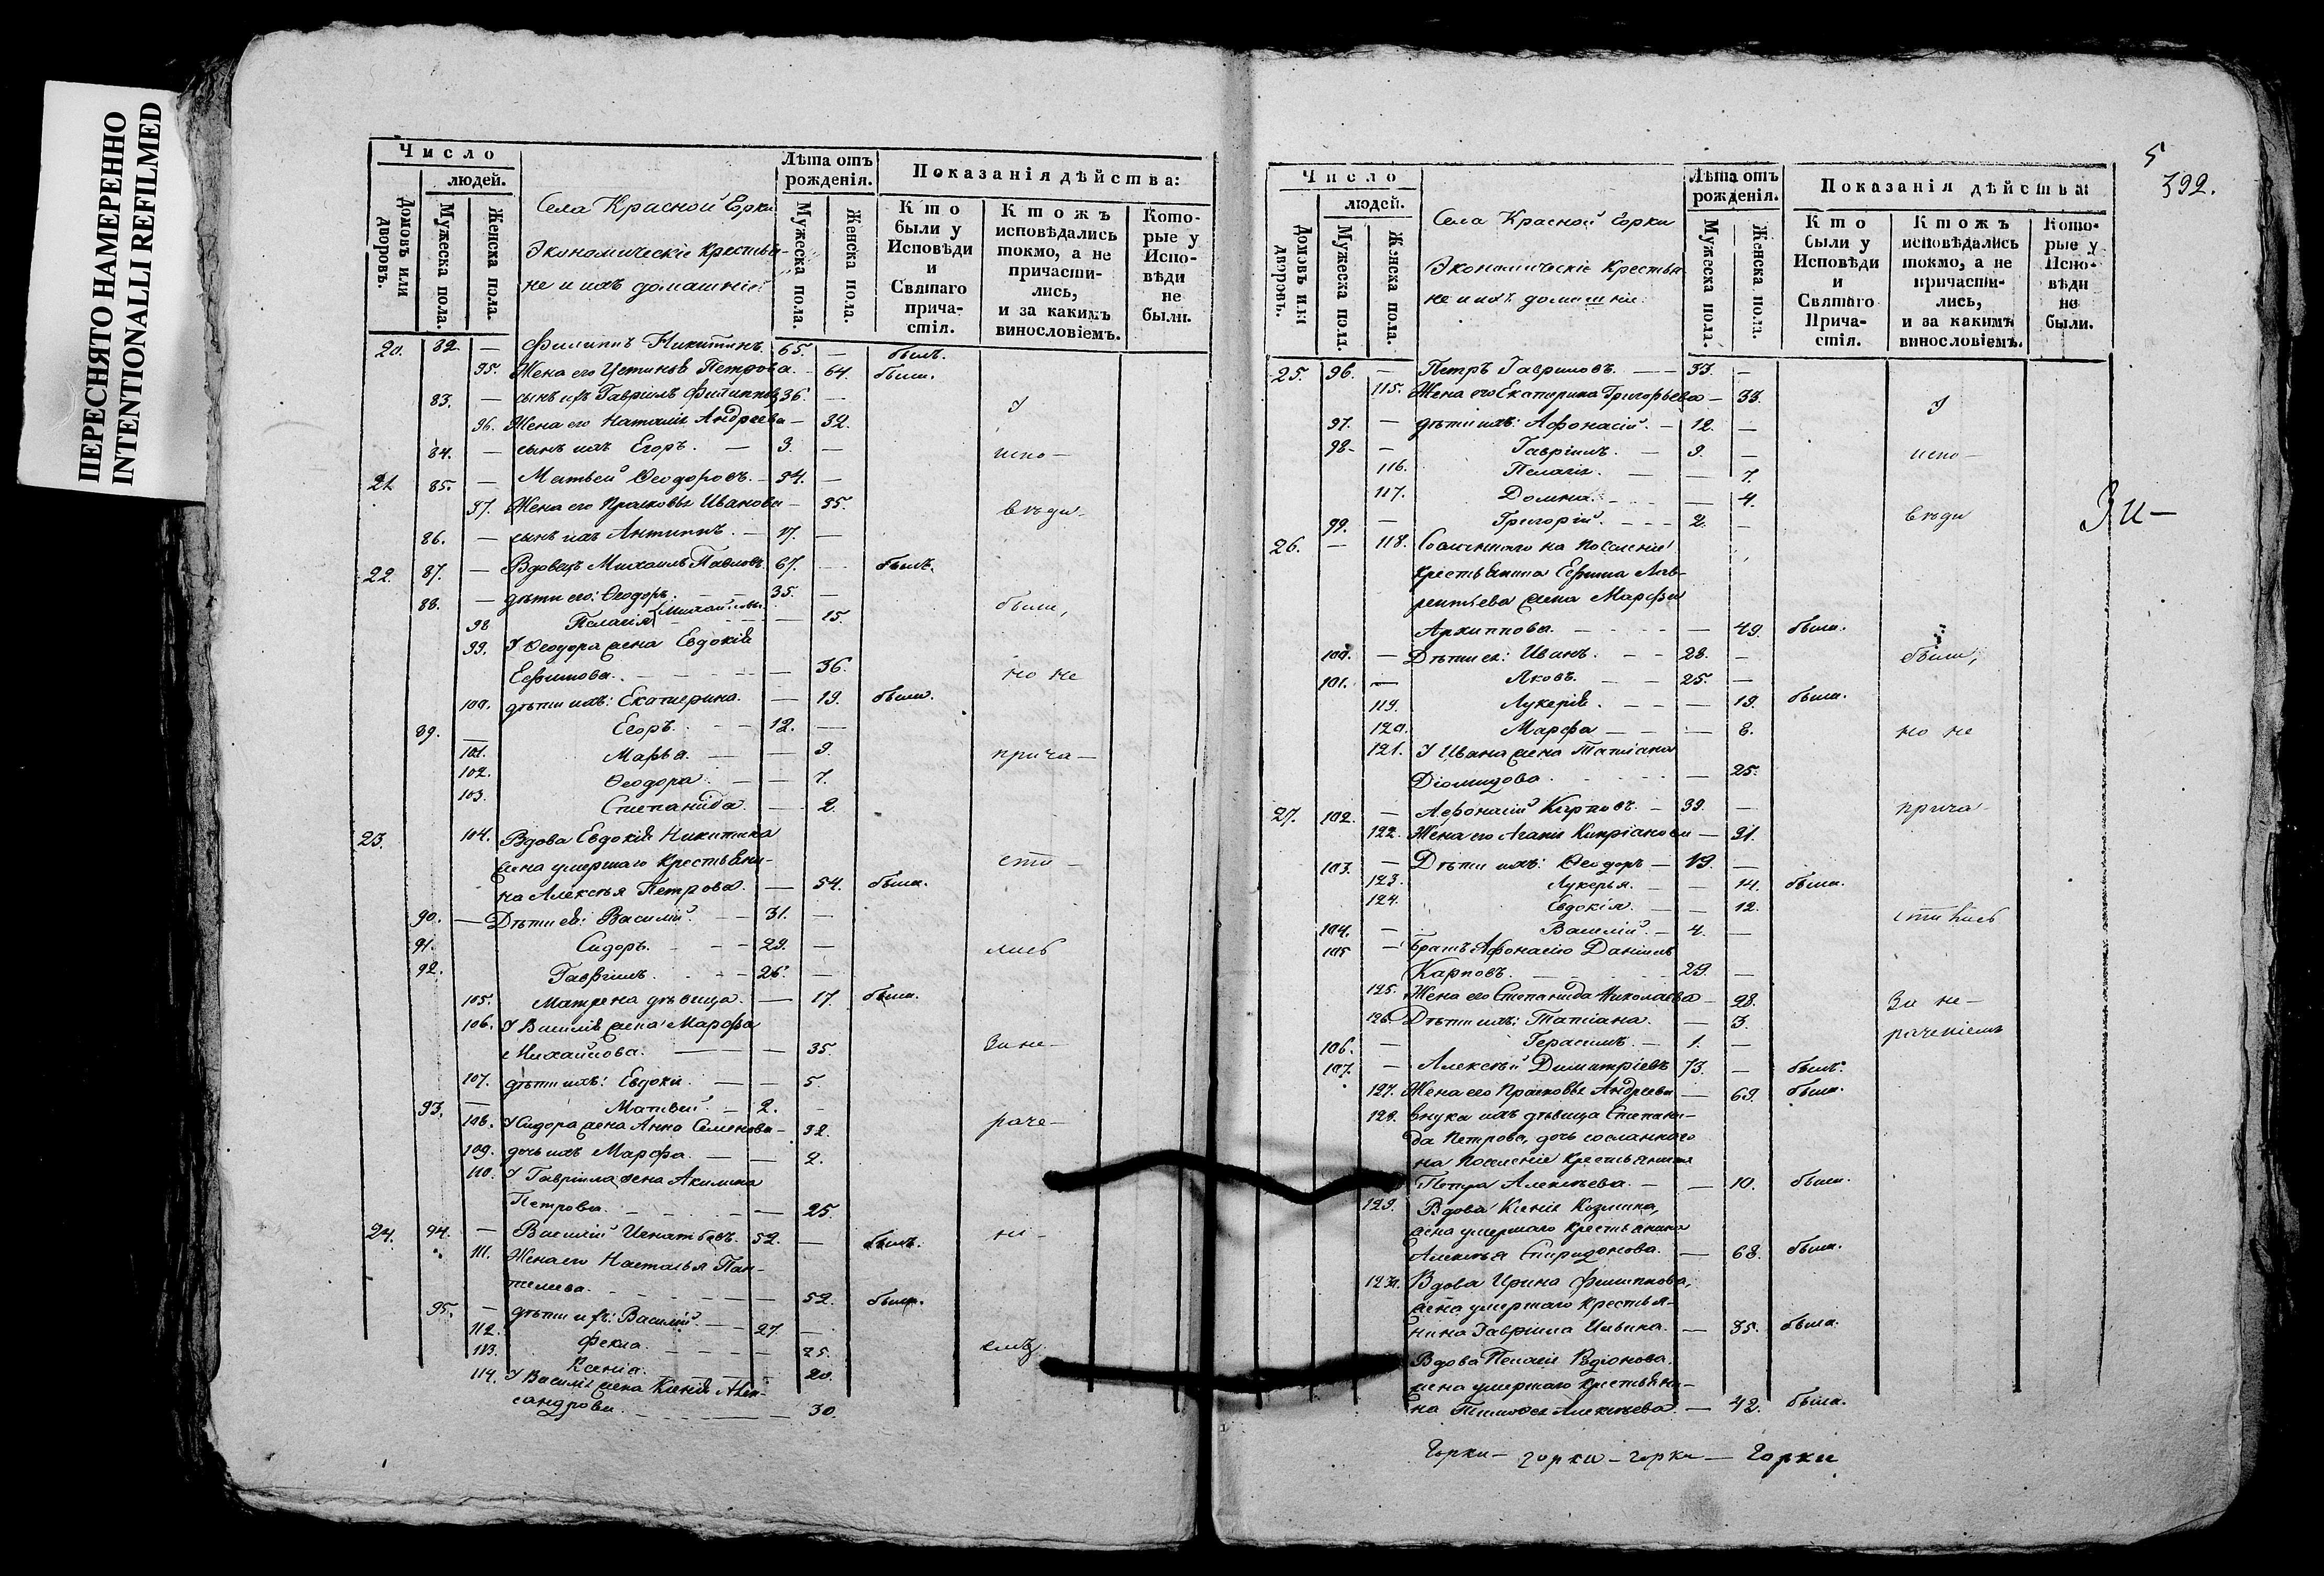 ПЕРЕСНЯТО НАМЕРЕННО
INTENTIONALLI REFILMED
Число
людей.
Домовъ или дворовъ.
Мужеска пола.
Женска пола.
Села Красной Горки
Экономическіе Крестья-
не и ихъ домашніе:
Лѣта отъ рожденія.
Мужеска пола.
Женска пола.
Показанія дѣйства:
Кто были у Исповѣди и Святаго причастія.
Ктожъ исповѣдались токмо, а не причастились, и за какимъ винословіемъ.
Которые у Исповѣди не были.
20. 82. — Филиппъ Никитинъ. 65. — былъ.
95. Жена его Устинья Петрова. 64. была.
83. — сынъ ихъ Гавріилъ Филипповъ 36. —
96. Жена его Наталія Андреева — 32.
84. — сынъ ихъ Егоръ. — 3. —
21. 85. — Матвей Ѳеодоровъ. — 54. —
97. Жена его Прасковья Иванова — 55.
86. — сынъ ихъ Антиппъ. — 17. —
22. 87. — Вдовецъ Михаилъ Павловъ. 67. — былъ.
88. — дѣти его: Ѳеодоръ. 35. —
98. Пелагія Михайловы. — 15.
99. У Ѳеодора жена Евдокія
Ефимова. — 36.
100. дѣти ихъ: Екатерина. — 19. была.
89. Егоръ. 12. —
101. Марья. — 9.
102. Ѳеодора. — 7.
103. Степанида. — 2.
23. 104. Вдова Евдокія Никитина
жена умершаго крестьяни-
на Алексѣя Петрова. — 54. была.
90. — Дѣти ея: Василій. 31. —
91. Сидоръ. 29. —
92. Гавріилъ. 26. —
105. Матрена дѣвица. — 17. была.
106. У Василія жена Марфа
Михайлова. — 35.
107. дѣти ихъ: Евдокія. — 5.
93. — Матвей. — 2. —
108. У Сидора жена Анна Семенова — 32.
109. дочь ихъ Марфа. — 2.
110. У Гавріила жена Акилина
Петрова. — 25.
24. 94. — Василій Игнатьевъ. 52. — былъ.
111. Жена его Наталья Пан-
телеева. — 52. была.
95. — дѣти ихъ: Василій. — 27. —
112. Фекла. — 25.
113. Ксенія. — 20.
114. У Василія жена Ксенія Алек-
сандрова. — 30.
У
испо-
вѣди
были,
но не
прича-
сти-
лись
за не-
раче-
ні-
емъ.
5
392.
Число
людей.
Домовъ или дворовъ.
Мужеска пола.
Женска пола.
Села Красной Горки
Экономическіе Крестья-
не и ихъ домашніе:
Лѣта отъ рожденія.
Мужеска пола.
Женска пола.
Показанія дѣйства:
Кто были у Исповѣди и Святаго Причастія.
Ктожъ исповѣдались токмо, а не причастились, и за какимъ винословіемъ.
Которые у Исповѣди не были.
25. 96. — Петръ Гавриловъ. — 33. —
115. Жена его Екатерина Григорьева — 33.
97. — дѣти ихъ: Афонасій. — 12. —
98. — Гавріилъ. — 9. —
116. Пелагія. — 7.
117. Домна. — 4.
99. — Григорій. 2. —
26. — 118. Сосланнаго на поселеніе
крестьянина Ефима Лав-
рентьева жена Марфа
Архиппова. — 49. была.
100. — Дѣти ея: Иванъ. 28. —
101. — Яковъ. 25. —
119. Лукерія. — 19. была.
120. Марфа — 8.
121. У Ивана жена Татіана
Діомидова. — 25.
27. 102. — Афонасій Карповъ. — 39. —
122. Жена его Агапія Кипріанова — 41.
103. — Дѣти ихъ: Ѳеодоръ — 19. —
123. Лукерья. — 14. была.
124. Евдокія. — 12.
104. — Василій. — 4. —
105 — Братъ Афонасію Даніилъ
Карповъ. 29. —
125. Жена его Степанида Николаева — 28.
126. Дѣти ихъ: Татіана. — 3.
106. — Герасимъ. — 1. —
107. — Алексѣй Димитріевъ 73. — былъ.
127. Жена его Прасковья Андреева — 69. была.
128. внука ихъ дѣвица Степани-
да Петрова, дочь сосланнаго
на поселеніе крестьянина
Петра Алексѣева. — 10. была.
129. Вдова Ксенія Козмина,
жена умершаго крестьянина
Алексѣя Спиридонова. — 68. была.
130. Вдова Ирина Филиппова,
жена умершаго крестья-
нина Гавріила Ильина. — 35. была.
Вдова Пелагія Родіонова,
жена умершаго крестьяни-
на Тимофея Алексѣева. — 42. была.
У
испо-
вѣди
были,
но не
прича-
стились
за не-
раченіемъ
Зи-
Горки — горки — горки — Горки